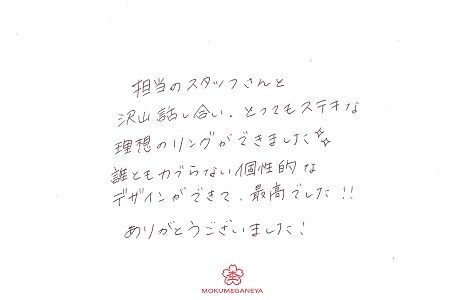 担当のスタッフさんと
沢山話し合い、とってもステキな
理想のリングができました☆☆
誰ともカブらない個性的な
デザインができて、最高でした!!
ありがとうございました!
MOKUMEGANEYA